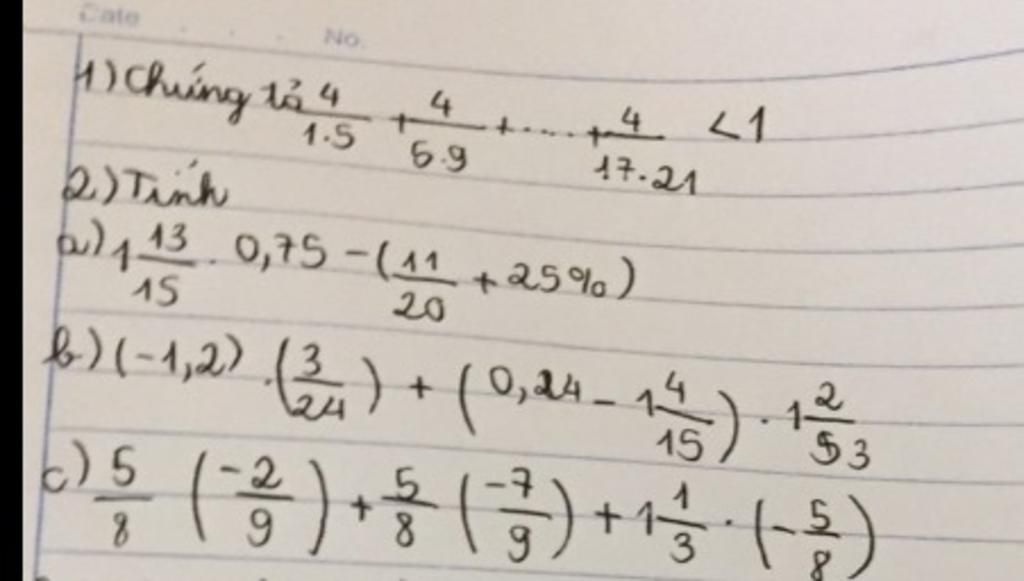 Date . . . . No.
1) Chứng tỏ 4/1.5 + 4/5.9 + .... + 4/17.21 < 1
2) Tính
a) 1 13/15 . 0,75 - (11/20 + 25%)
b) (-1,2) . (3/24) + (0,24 - 1 4/15) . 1 2/53
c) 5/8 (-2/9) + 5/8 (-7/9) + 1 1/3 . (-5/8)